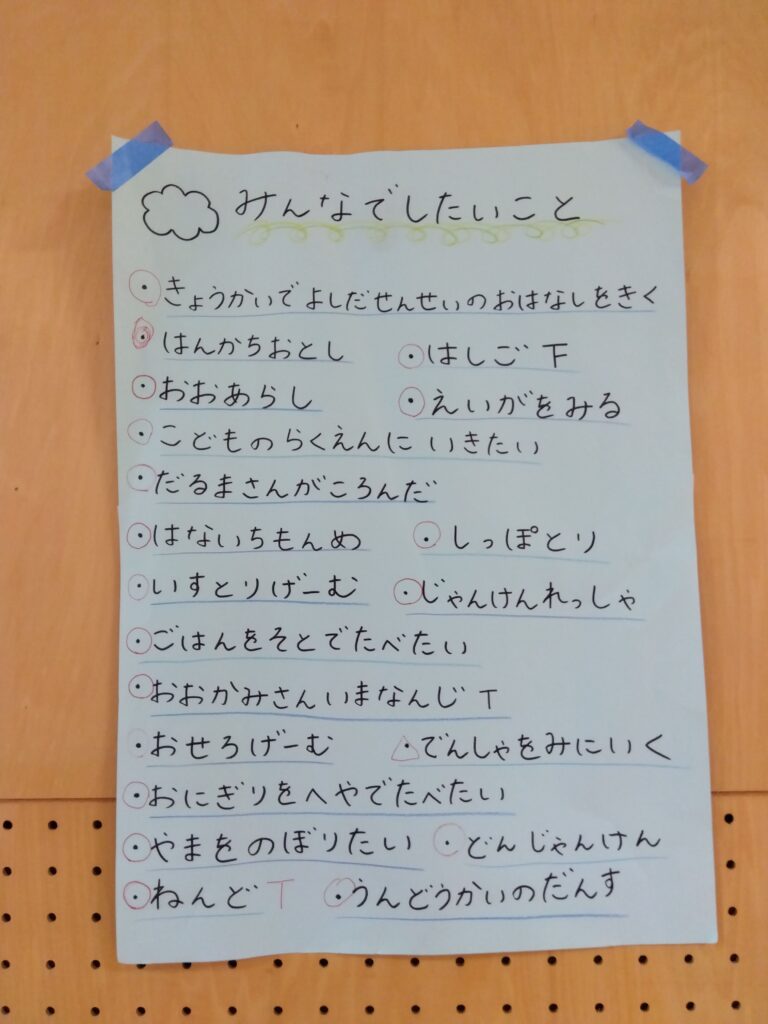 みんなでしたいこと
・きょうかいでよしだせんせいのおはなしをきく
・はんかちおとし ・はしご下
・おおあらし ・えいがをみる
・こどものらくえんにいきたい
・だるまさんがころんだ
・はないちもんめ ・しっぽとり
・いすとりげーむ ・じゃんけんれっしゃ
・ごはんをそとでたべたい
・おおかみさんいまなんじT
・おせろげーむ ・でんしゃをみにいく
・おにぎりをへやでたべたい
・やまをのぼりたい ・どんじゃんけん
・ねんどT ・うんどうかいのだんす